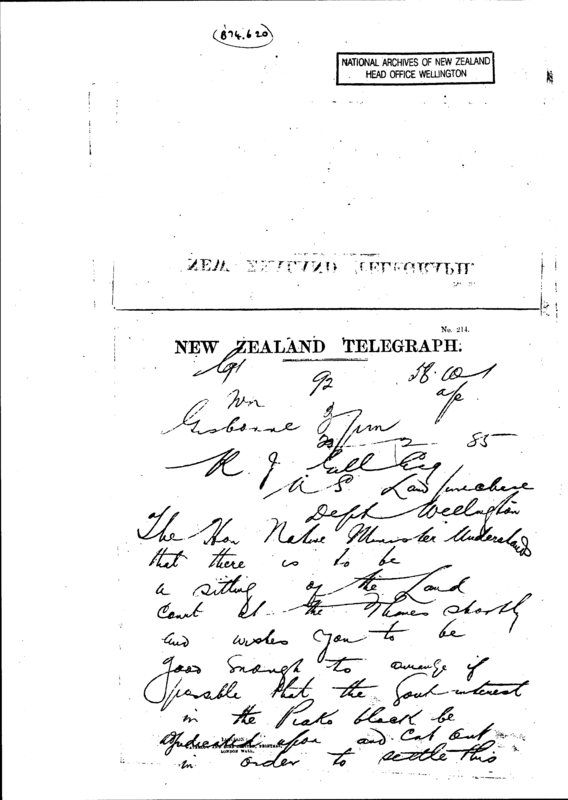 (874.620)
NATIONAL ARCHIVES OF NEW ZEALAND
HEAD OFFICE WELLINGTON
NEW ZEALAND TELEGRAPH.
No. 214.
NEW ZEALAND TELEGRAPH.
92
Wn
Gisborne
85
R. J. Gill Esq
U S Land purchase
Dept Wellington
The Hon Native Minister Understands
that there is to be
a sitting of the Land
Court at the Thames shortly
and wishes you to be
good enough to arrange if
possible that the Govt interest
in the Piako block be
adjudicated upon and cut out
LONDON WALL.
in order to settle this